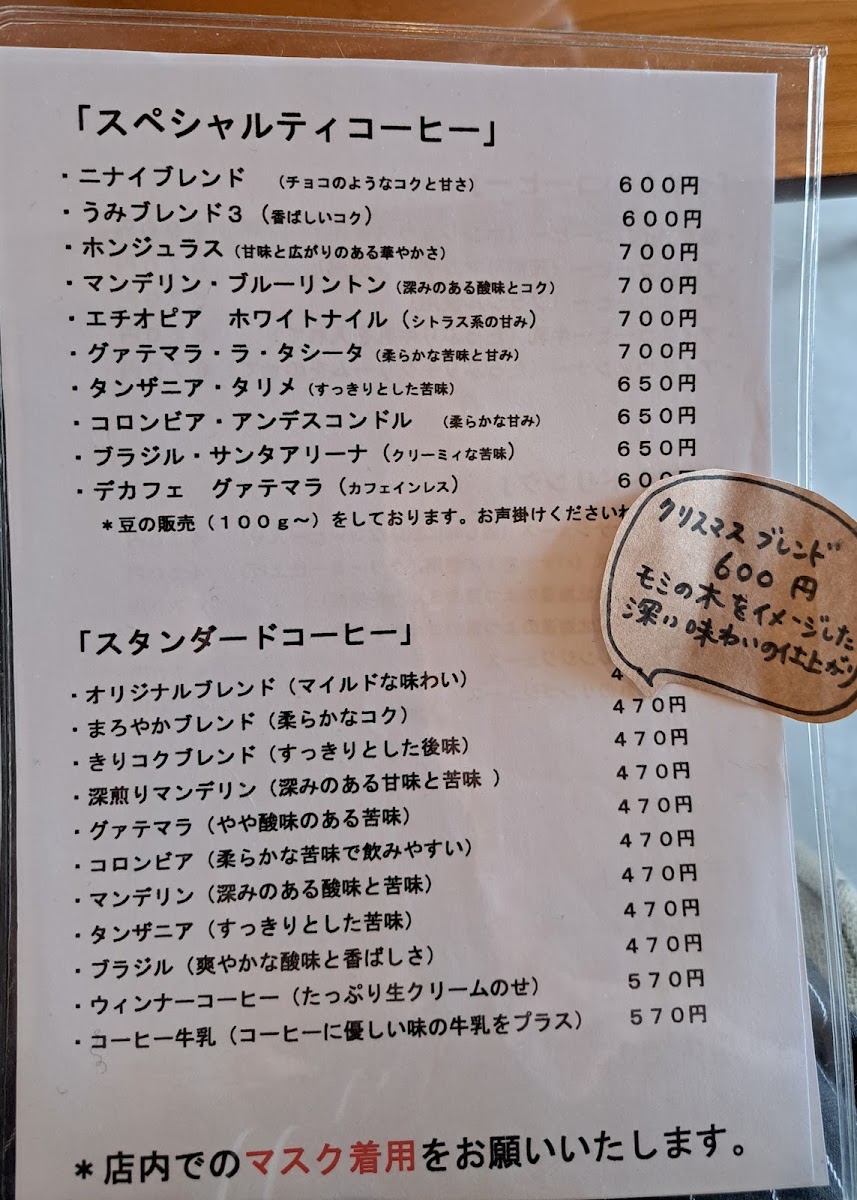 「スペシャルティコーヒー」
・ニナイブレンド　（チョコのようなコクと甘さ）　６００円
・うみブレンド３（香ばしいコク）　６００円
・ホンジュラス（甘味と広がりのある華やかさ）　７００円
・マンデリン・ブルーリントン（深みのある酸味とコク）　７００円
・エチオピア　ホワイトナイル（シトラス系の甘み）　７００円
・グァテマラ・ラ・タシータ（柔らかな苦味と甘み）　７００円
・タンザニア・タリメ（すっきりとした苦味）　６５０円
・コロンビア・アンデスコンドル　（柔らかな甘み）　６５０円
・ブラジル・サンタアリーナ（クリーミィな苦味）　６５０円
・デカフェ　グァテマラ（カフェインレス）　６００円
＊豆の販売（１００ｇ～）をしております。お声掛けくださいね
クリスマスブレンド
６００円
モミの木をイメージした
深い味わいの仕上がり
「スタンダードコーヒー」
・オリジナルブレンド（マイルドな味わい）　４
・まろやかブレンド（柔らかなコク）　４７０円
・きりコクブレンド（すっきりとした後味）　４７０円
・深煎りマンデリン（深みのある甘味と苦味 ）　４７０円
・グァテマラ（やや酸味のある苦味）　４７０円
・コロンビア（柔らかな苦味で飲みやすい）　４７０円
・マンデリン（深みのある酸味と苦味）　４７０円
・タンザニア（すっきりとした苦味）　４７０円
・ブラジル（爽やかな酸味と香ばしさ）　４７０円
・ウィンナーコーヒー（たっぷり生クリームのせ）　５７０円
・コーヒー牛乳（コーヒーに優しい味の牛乳をプラス）　５７０円
＊店内でのマスク着用をお願いいたします。